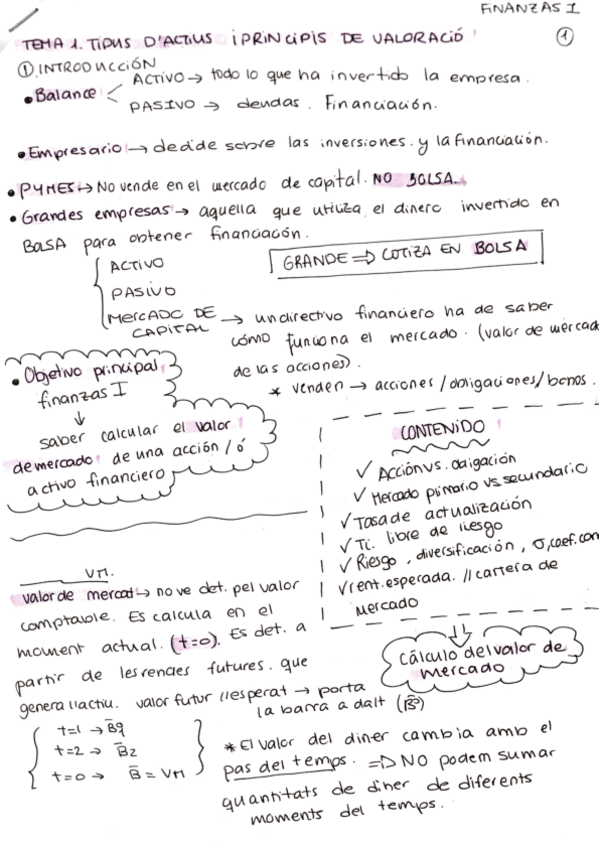 FINANZAS I
TEMA 1. TIPUS D'ACTIUS I PRINCIPIS DE VALORACIÓ
1
① INTRODUCCIÓN
• Balance < ACTIVO → todo lo que ha invertido la empresa.
PASIVO → deudas. Financiación.
• Empresario → decide sobre las inversiones y la financiación.
• PYMES → No vende en el mercado de capital. NO BOLSA.
• Grandes empresas → aquella que utiliza el dinero invertido en
BOLSA para obtener financiación.
GRANDE ⇒ COTIZA EN BOLSA
ACTIVO
PASIVO
MERCADO DE CAPITAL → un directivo financiero ha de saber
cómo funciona el mercado. (valor de mercad
de las acciones).
* venden → acciones / obligaciones / bonos.
• Objetivo principal
finanzas I
↓
saber calcular el valor
de mercado de una acción / ó
activo financiero
CONTENIDO
✓ Acción vs. obligación
✓ Mercado primario vs secundario
✓ Tasa de actualización
✓ Ti. libre de riesgo
✓ Riesgo, diversificación, σ, coef. con
✓ rent. esperada. // cartera de
Mercado
⇓
Cálculo del valor de
mercado
VM.
Valor de mercat → no ve det. pel valor
comptable. Es calcula en el
moment actual. (t=0). Es det. a
partir de les rendes futures. que
genera l'actiu. valor futur // esperat → porta
la barra a dalt
t=1 →
t=2 → B̄2
t=0 → B̄ = VM
* El valor del diner cambia amb el
pas del temps. ⇒ NO podem sumar
quantitats de diner de diferents
moments del temps.